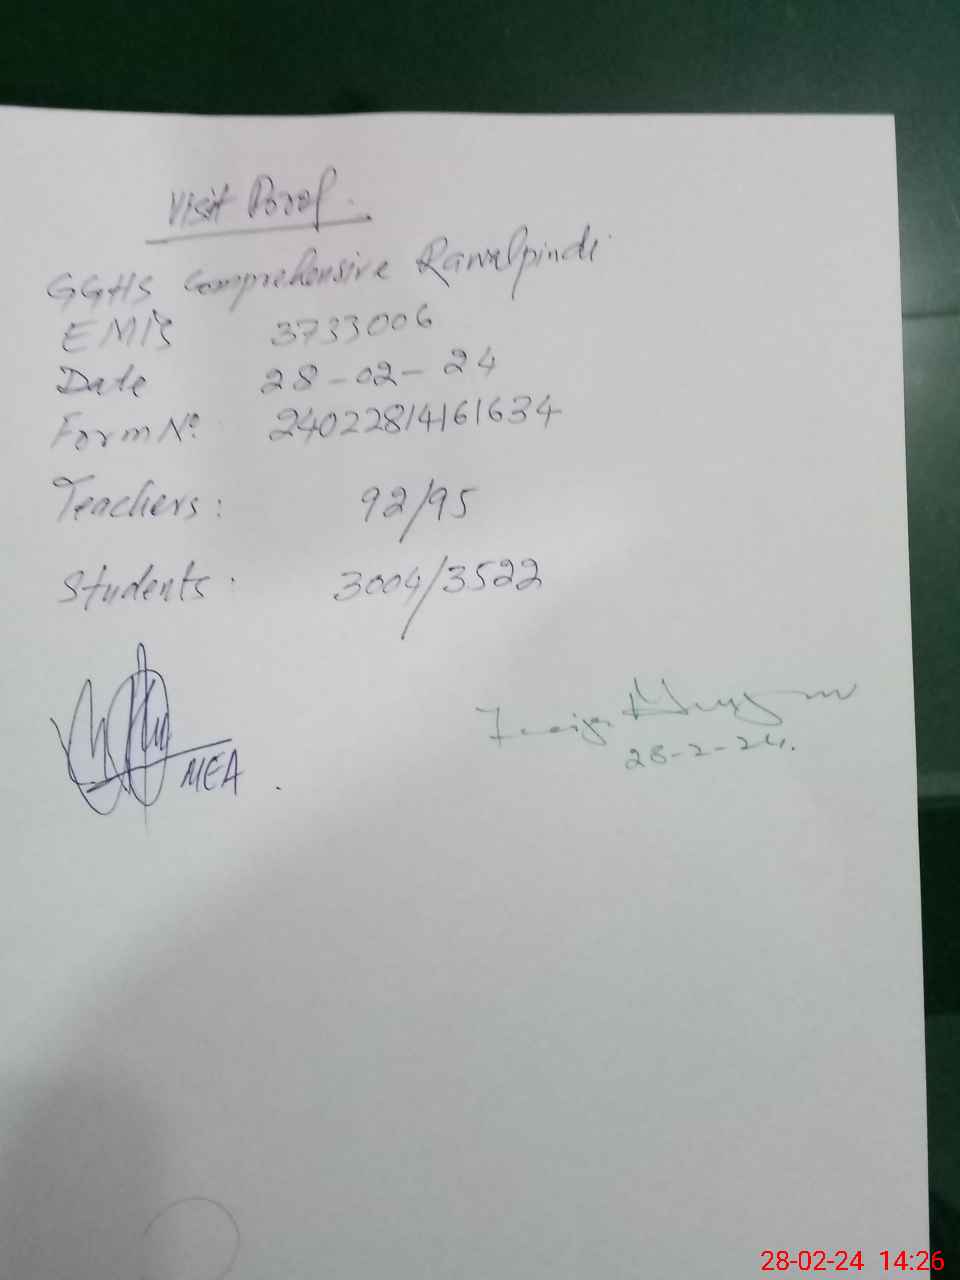 Visit Proof.
GGHS Comprehensive Rawalpindi
EMIS 3733006
Date 28-02-24
Form No. 24022814161634
Teachers: 92/95
Students: 3004/3522
MEA.
28-2-24.
28-02-24 14:26